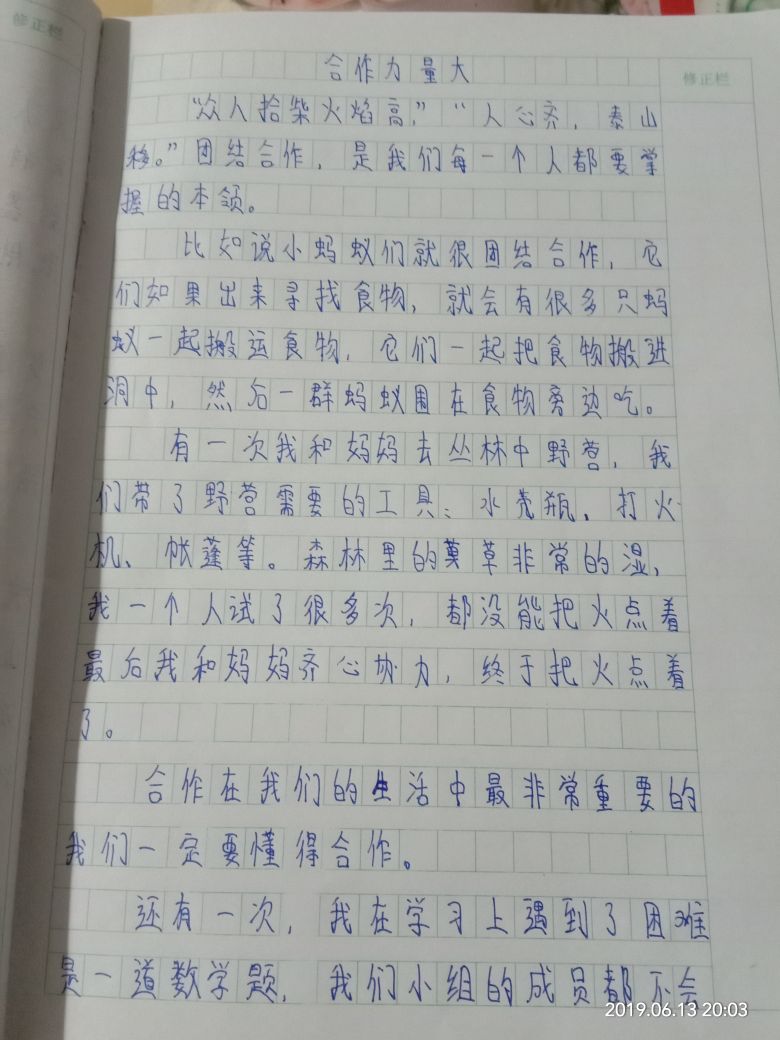 修正栏
修正栏
合作力量大
“众人拾柴火焰高，”“人心齐，泰山
移。”团结合作，是我们每一个人都要掌
握的本领。
比如说小蚂蚁们就很团结合作，它
们如果出来寻找食物，就会有很多只蚂
蚁一起搬运食物，它们一起把食物搬进
洞中，然后一群蚂蚁围在食物旁边吃。
有一次我和妈妈去丛林中野营，我
们带了野营需要的工具：水壳瓶、打火
机、帐蓬等。森林里的草非常的湿，
我一个人试了很多次，都没能把火点着
最后我和妈妈齐心协力，终于把火点着
了。
合作在我们的生活中最非常重要的
我们一定要懂得合作。
还有一次，我在学习上遇到了困难
是一道数学题，我们小组的成员都不会
2019.06.13 20:03